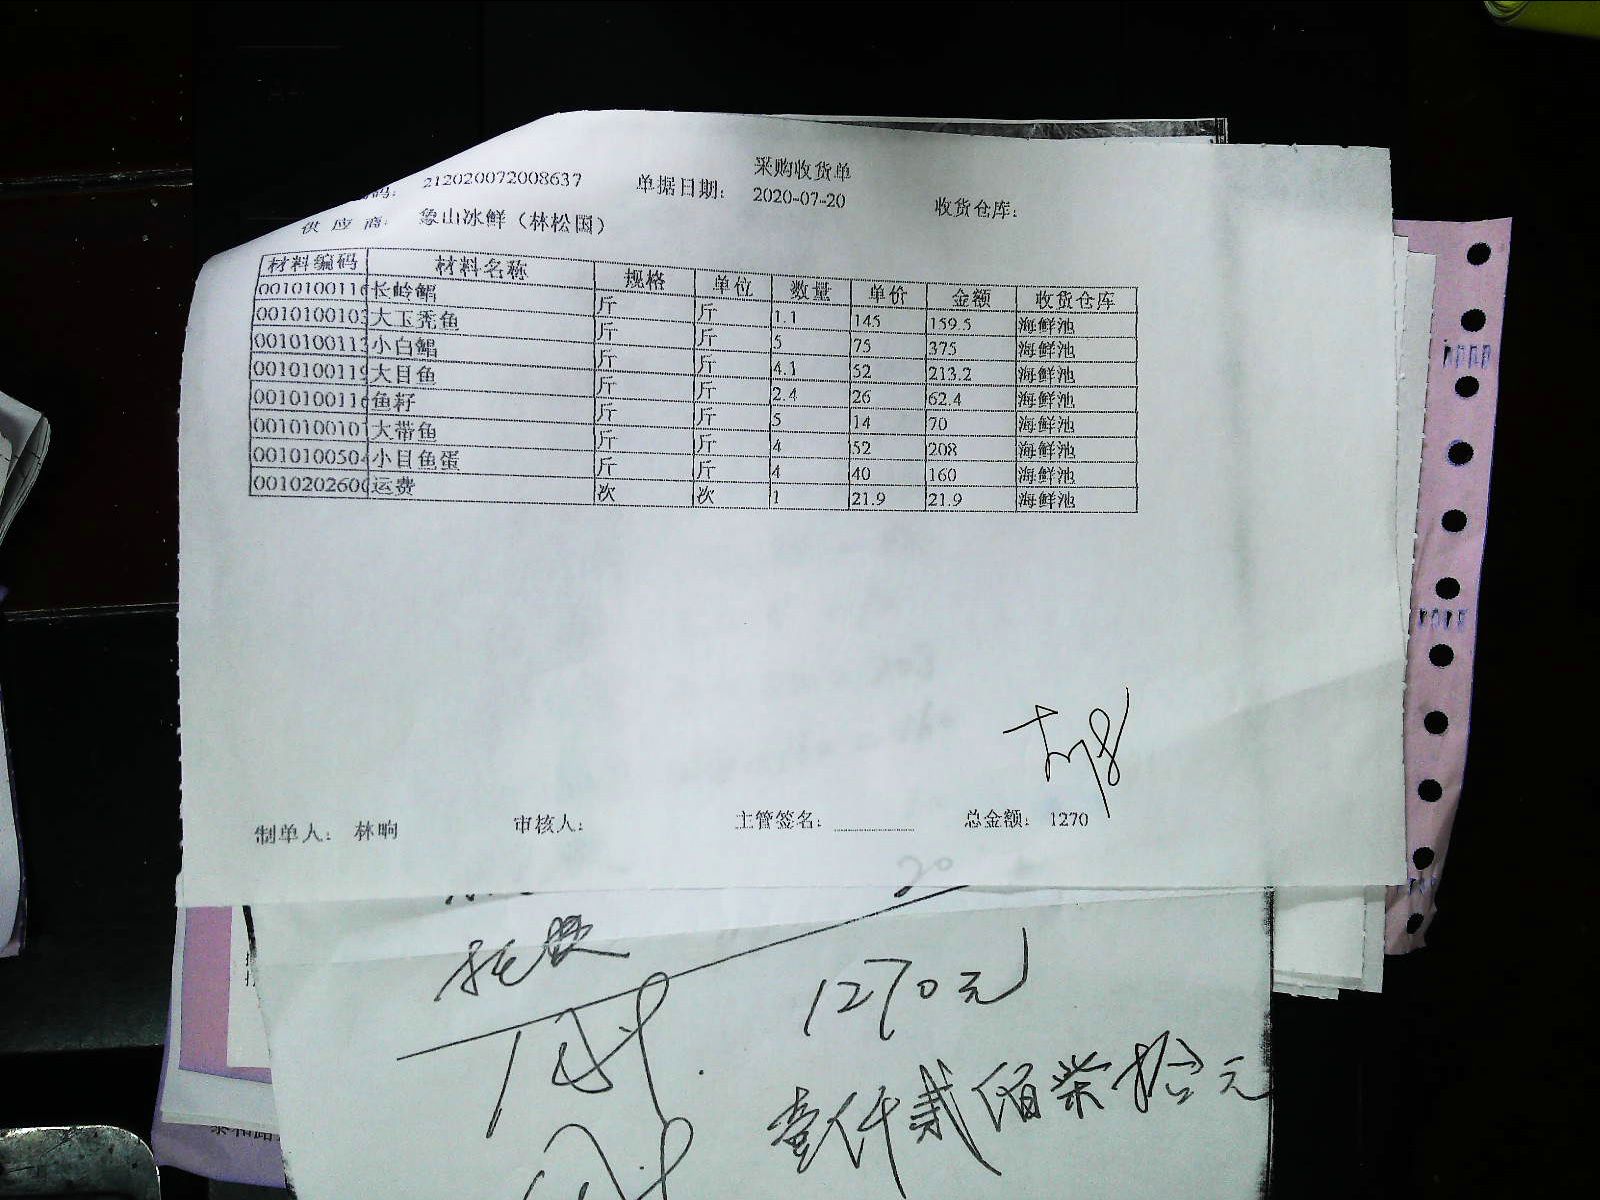 采购收货单
码： 212020072008637 单据日期： 2020-07-20 收货仓库：
供 应 商： 象山冰鲜（林松国）
材料编码 材料名称 规格 单位 数量 单价 金额 收货仓库
0010100116 长岭鲳 斤 斤 1.1 145 159.5 海鲜池
0010100103 大玉秃鱼 斤 斤 5 75 375 海鲜池
0010100113 小白鲳 斤 斤 4.1 52 213.2 海鲜池
0010100119 大目鱼 斤 斤 2.4 26 62.4 海鲜池
0010100116 鱼籽 斤 斤 5 14 70 海鲜池
0010100107 大带鱼 斤 斤 4 52 208 海鲜池
0010100504 小目鱼蛋 斤 斤 4 40 160 海鲜池
0010202600 运费 次 次 1 21.9 21.9 海鲜池
制单人： 林晌 审核人： 主管签名： 总金额： 1270
20
1270元
壹仟贰佰柒拾元